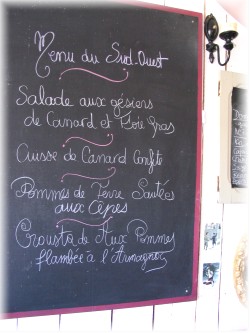 Menu du Sud-Ouest
Salade aux gésiers
de Canard et Foie Gras
Cuisse de Canard Confite
Pommes de Terre Sautées
aux Cèpes
Crousta de Aux Pommes
flambée à l'Armagnac